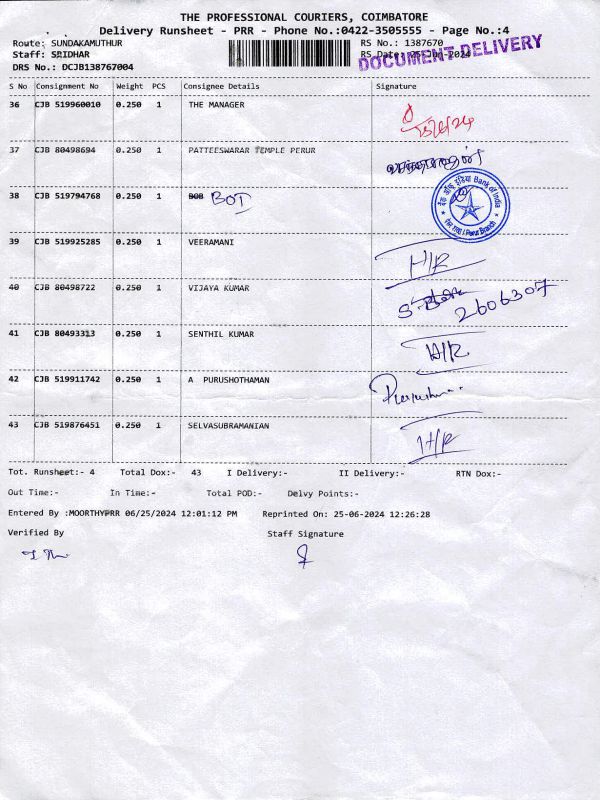 THE PROFESSIONAL COURIERS, COIMBATORE
Delivery Runsheet - PRR - Phone No.:0422-3505555 - Page No.:4
Route: SUNDAKAMUTHUR RS No.: 1387670
Staff: SRIDHAR RS Date: 25-Jun-2024
DOCUMENT DELIVERY
DRS No.: DCJB138767004
S No Consignment No Weight PCS Consignee Details Signature
36 CJB 519960010 0.250 1 THE MANAGER
37 CJB 80498694 0.250 1 PATTEESWARAR TEMPLE PERUR
38 CJB 519794768 0.250 1 BOB BOI
बैंक ऑफ़ इंडिया Bank of India
Perur Branch
39 CJB 519925285 0.250 1 VEERAMANI H/R
40 CJB 80498722 0.250 1 VIJAYA KUMAR
2606307
41 CJB 80493313 0.250 1 SENTHIL KUMAR H/R
42 CJB 519911742 0.250 1 A PURUSHOTHAMAN
43 CJB 519876451 0.250 1 SELVASUBRAMANIAN H/R
Tot. Runsheet:- 4 Total Dox:- 43 I Delivery:- II Delivery:- RTN Dox:-
Out Time:- In Time:- Total POD:- Delvy Points:-
Entered By :MOORTHYPRR 06/25/2024 12:01:12 PM Reprinted On: 25-06-2024 12:26:28
Verified By Staff Signature